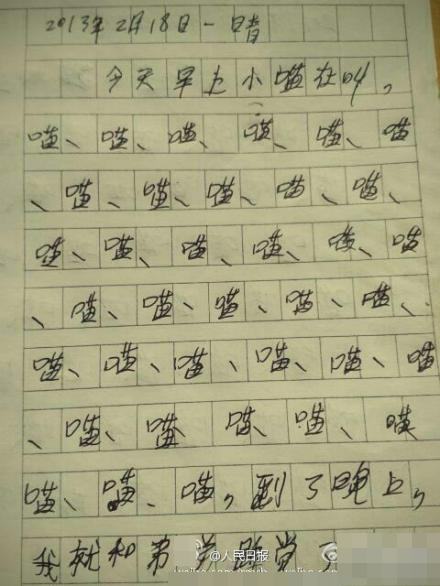 2013年2月18日一晴
今天早上小喵在叫,
喵、喵、喵、喵、喵、喵
、喵、喵、喵、喵、喵、
喵、喵、喵、喵、喵、喵
、喵、喵、喵、喵、喵、
喵、喵、喵、喵、喵、喵
、喵、喵 喵、喵、喵
喵、喵、喵,到了晚上,
@人民日报
我就和弟